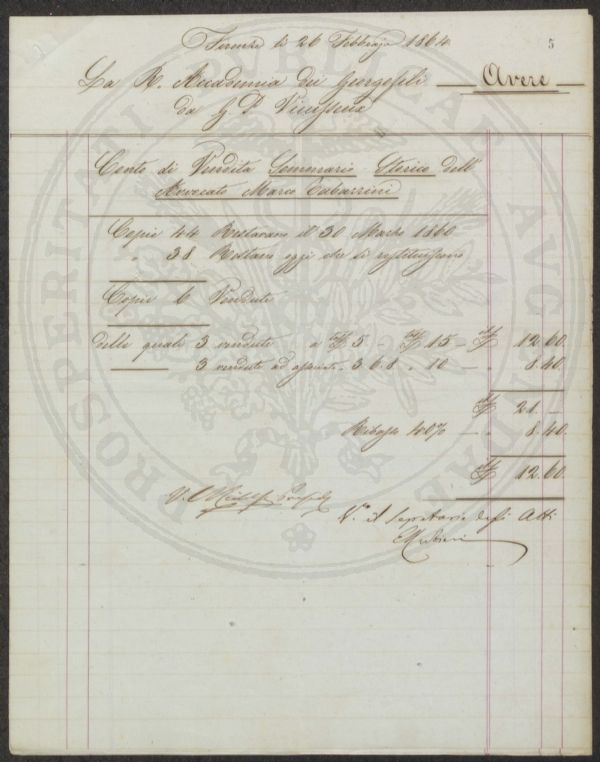 Firenze li 26 Febbrajo 1864
5
La R. Accademia dei Georgofili Avere
da G P Vieusseux
Conto di Vendita Sommario Storico dell'
Avvocato Marco Tabarrini
Copie 44 Restavano il 30 Marzo 1860
" 38 Restano oggi che si restituiscono
Copie 6 Vendute
delle quali 3 vendute a £ 5 - £ 15 - £ 12.60
3 vendute ad associati 3 6 8 " 10 - " 8.40
£ 21 -
Ribasso 40% " 8.40
£ 12.60
V.o il Segretario degli Atti
PROSPERITATI PUBLICAE AUGENDAE